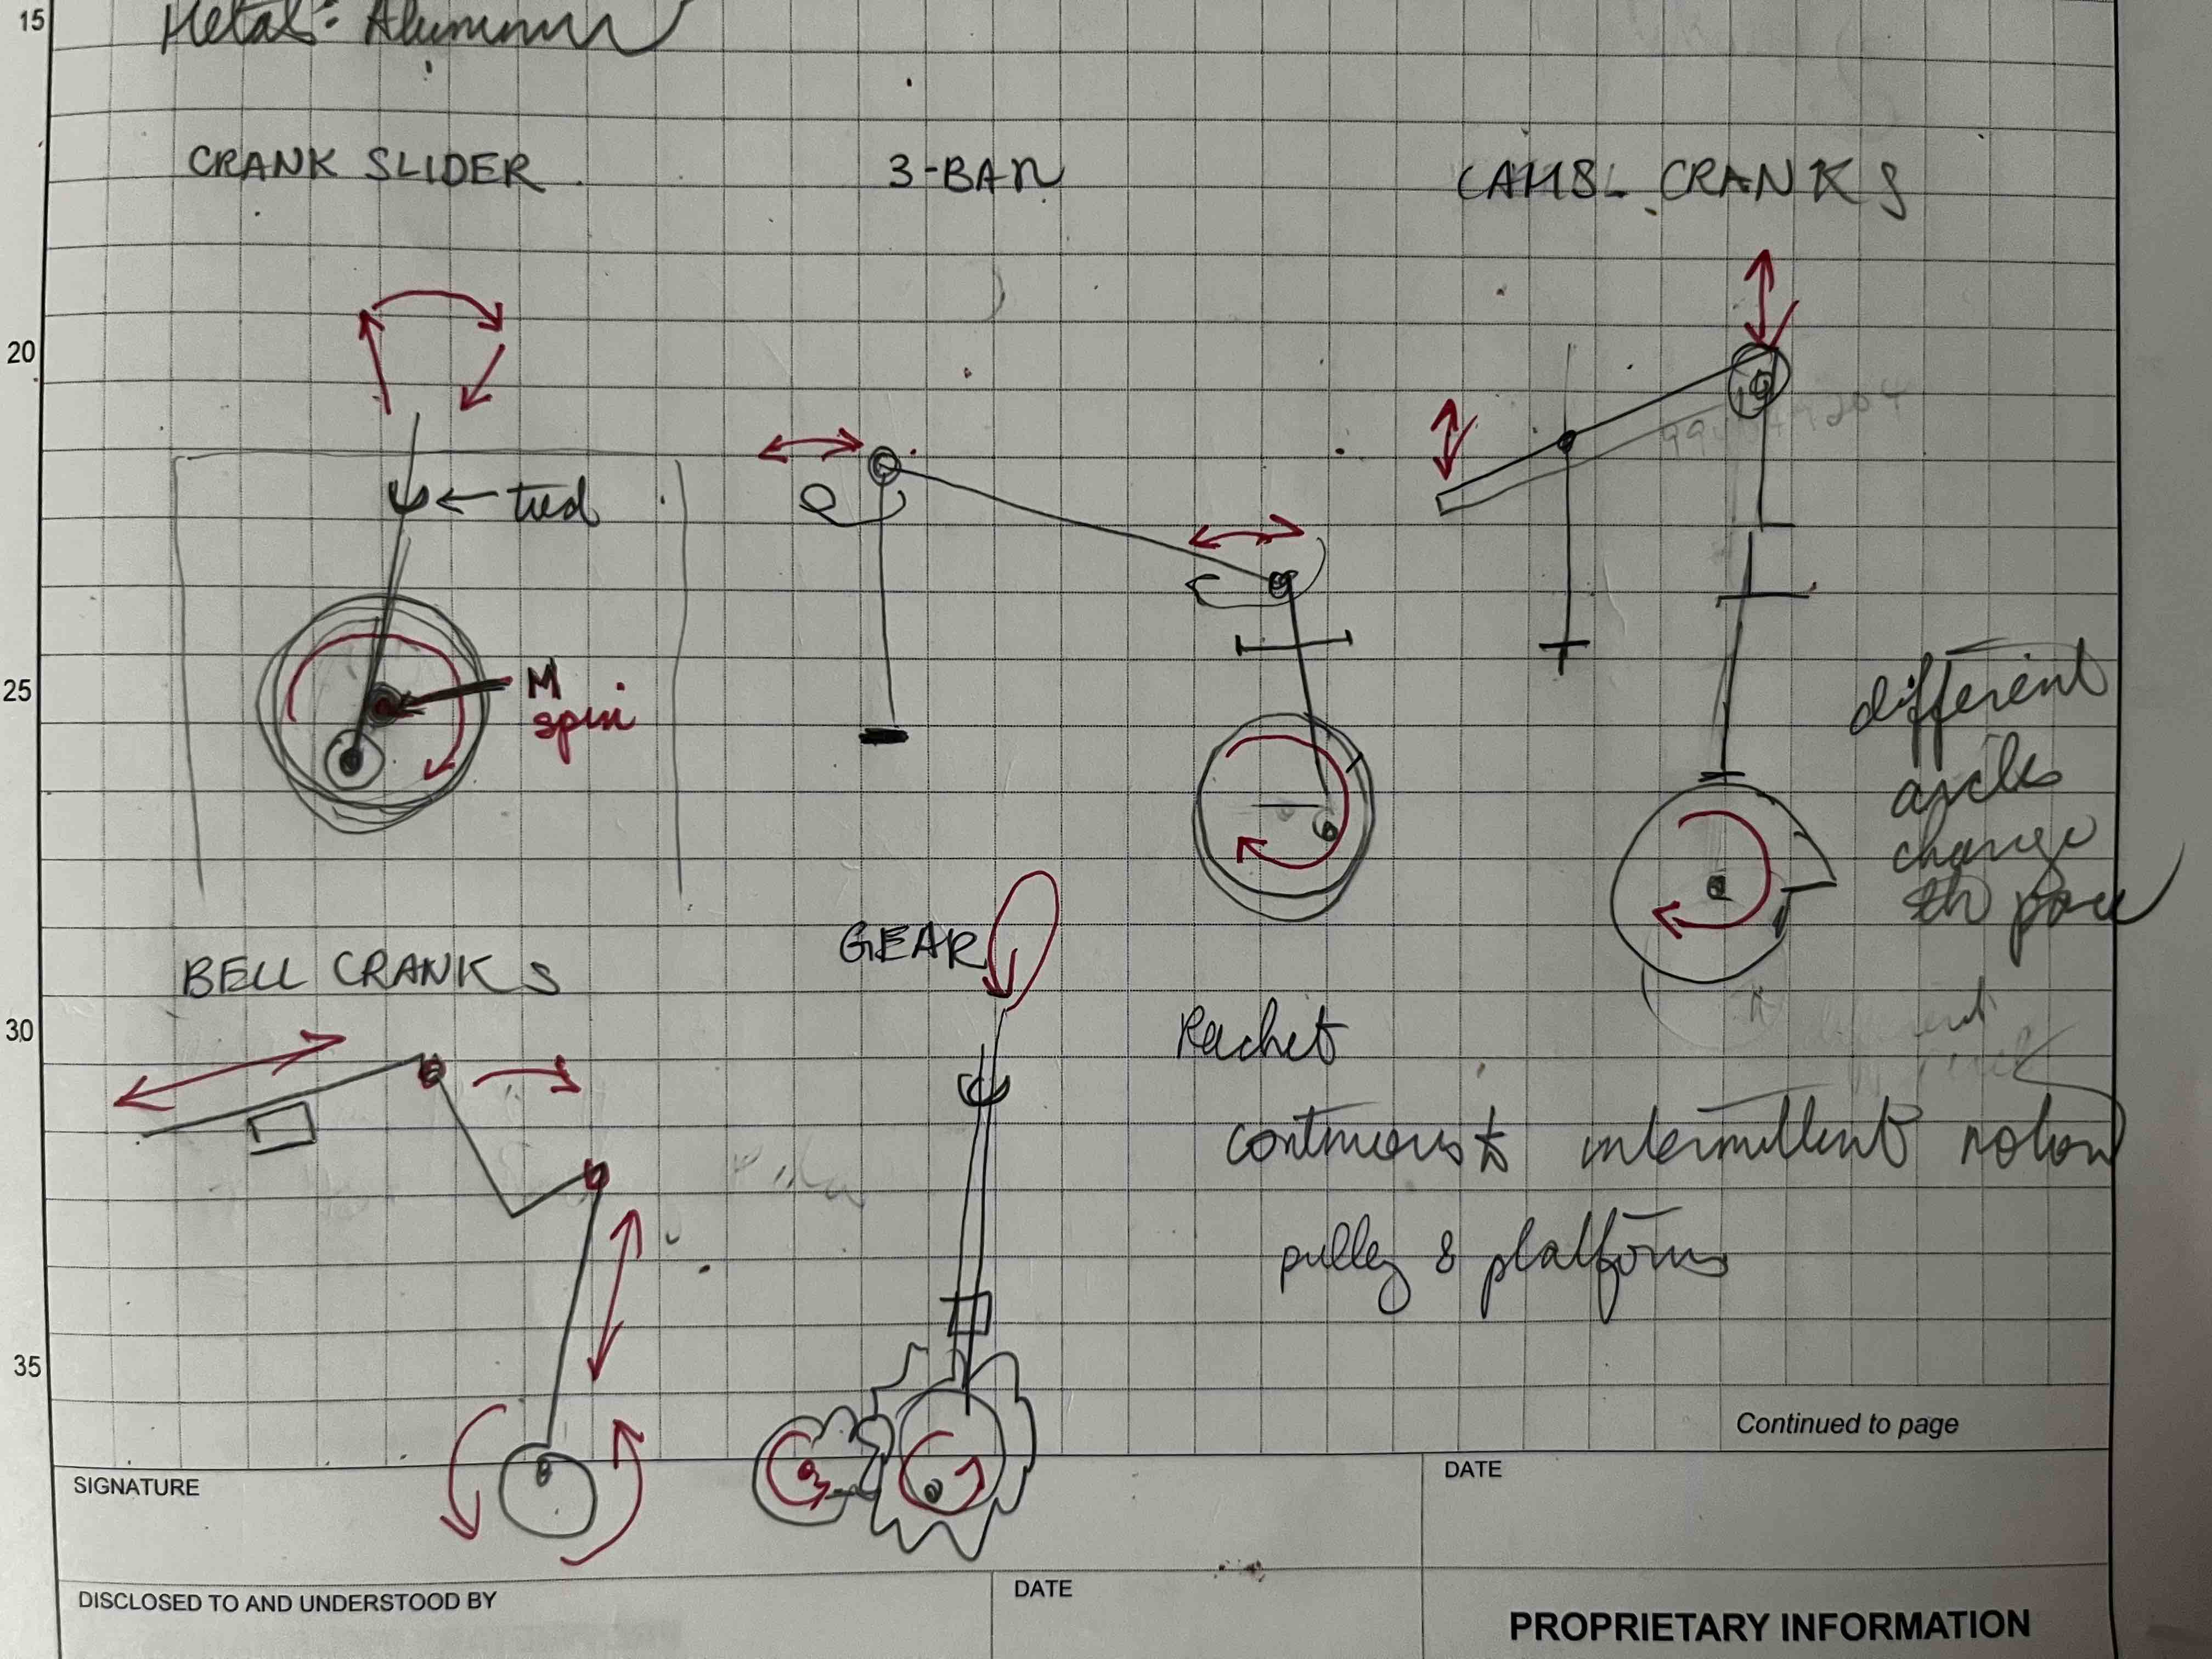 15
Metal: Aluminum
CRANK SLIDER
3-BAR
CAMS CRANKS
20
tied
25
M
spin
different
change
GEAR
BELL CRANKS
30
Rachet
continuous to intermittent motion
pulley & platforms
35
Continued to page
SIGNATURE
DATE
DISCLOSED TO AND UNDERSTOOD BY
DATE
PROPRIETARY INFORMATION